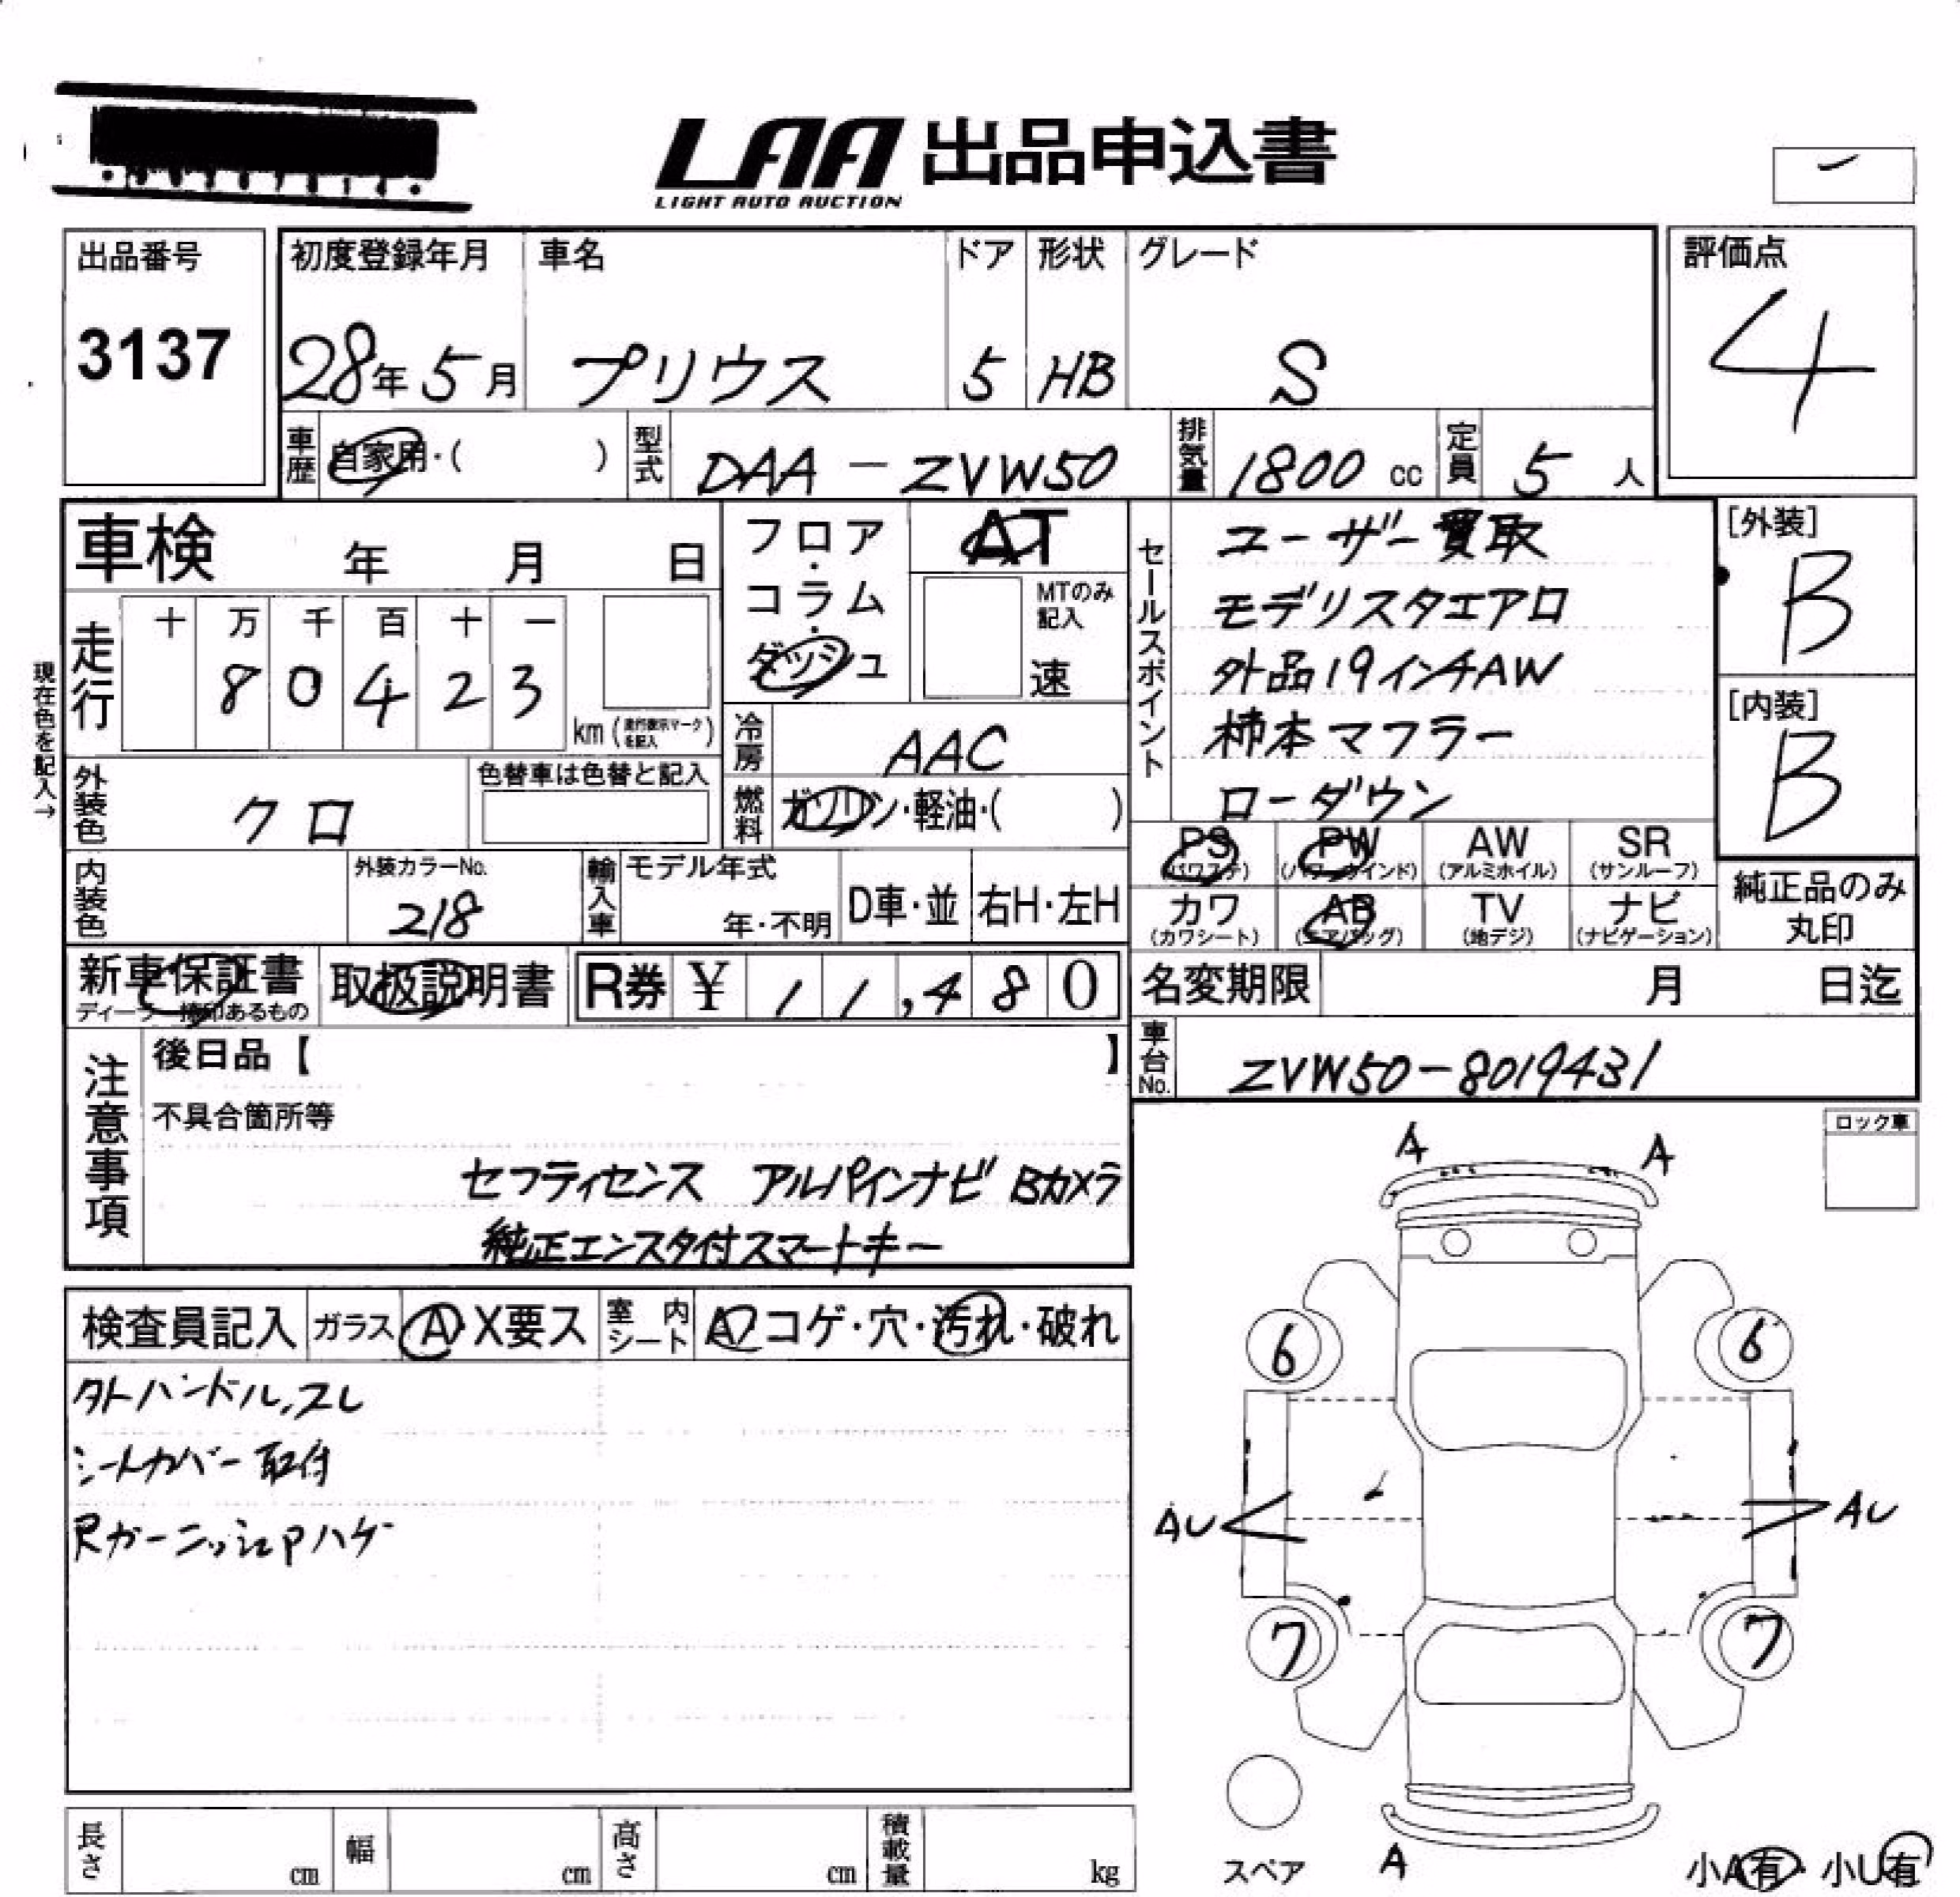 LAA 出品申込書
LIGHT AUTO AUCTION
出品番号
3137
初度登録年月
28年 5月
車名
プリウス
ドア
5
形状
HB
グレード
S
評価点
4
車歴
自家用・( )
型式
DAA-ZVW50
排気量
1800 cc
定員
5 人
車検 年 月 日
フロア・コラム・ダッシュ
AT
MTのみ記入
速
セールスポイント
ユーザー買取
モデリスタエアロ
外品19インチAW
柿本マフラー
ローダウン
[外装]
B
[内装]
B
現在色を記入→
走行
十 万 千 百 十 一
8 0 4 2 3
km (走行表示マークを記入)
冷房
AAC
燃料
ガソリン・軽油・( )
外装色
クロ
色替車は色替と記入
内装色
外装カラーNo.
218
輸入車
モデル年式
年・不明
D車・並
右H・左H
PS (パワステ)
PW (パワーウインド)
AW (アルミホイル)
SR (サンルーフ)
カワ (カワシート)
AB (エアバッグ)
TV (地デジ)
ナビ (ナビゲーション)
純正品のみ
丸印
新車保証書
ディーラー捺印あるもの
取扱説明書
R券 ¥ 11,480
名変期限 月 日迄
車台No.
ZVW50-8019431
注意事項
後日品【 】
不具合箇所等
セフティセンス アルパインナビ Bカメラ
純正エンスタ付スマートキー
ロック車
検査員記入
ガラス
A・X要ス
室内シート
コゲ・穴・汚れ・破れ
ハンドル.スレ
シートカバー取付
Rガーニッシュ Pハゲ
A A
6 6
AU AU
7 7
A
スペア
小A有・小U有
長さ cm
幅 cm
高さ cm
積載量 kg